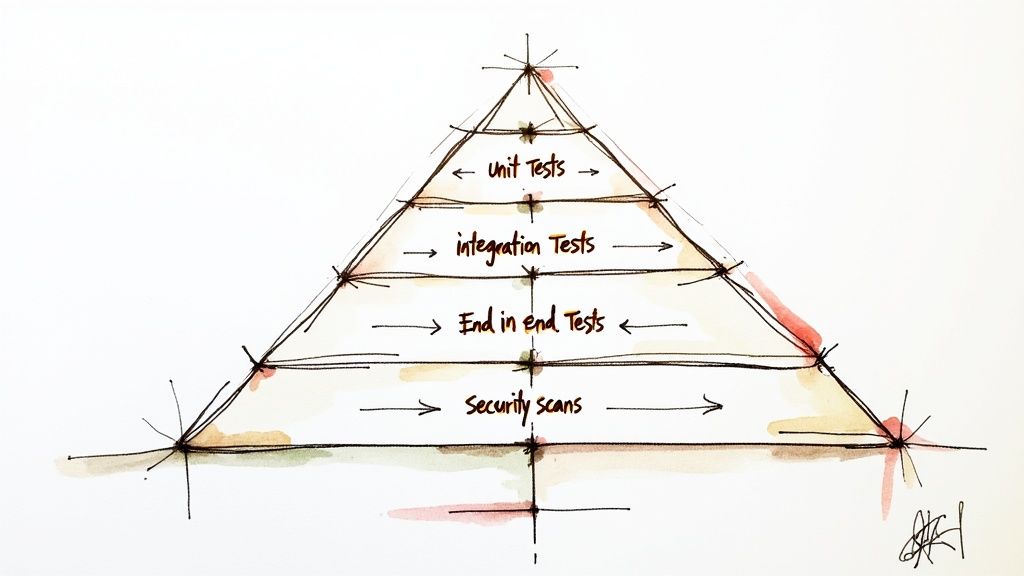 unit Tests
integration Tests
End in end Tests
Security scans